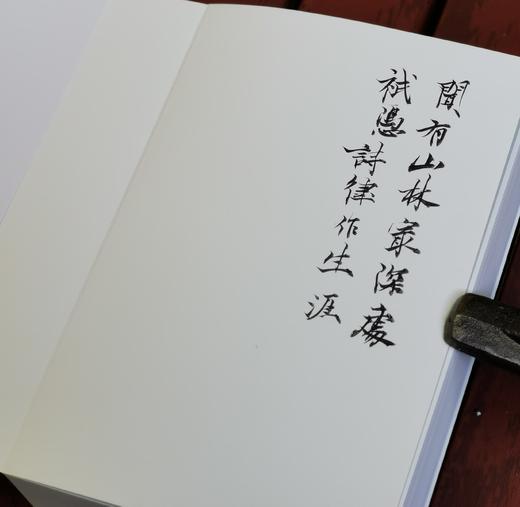 聞有山林㝡深處
祇憑詩律作生涯